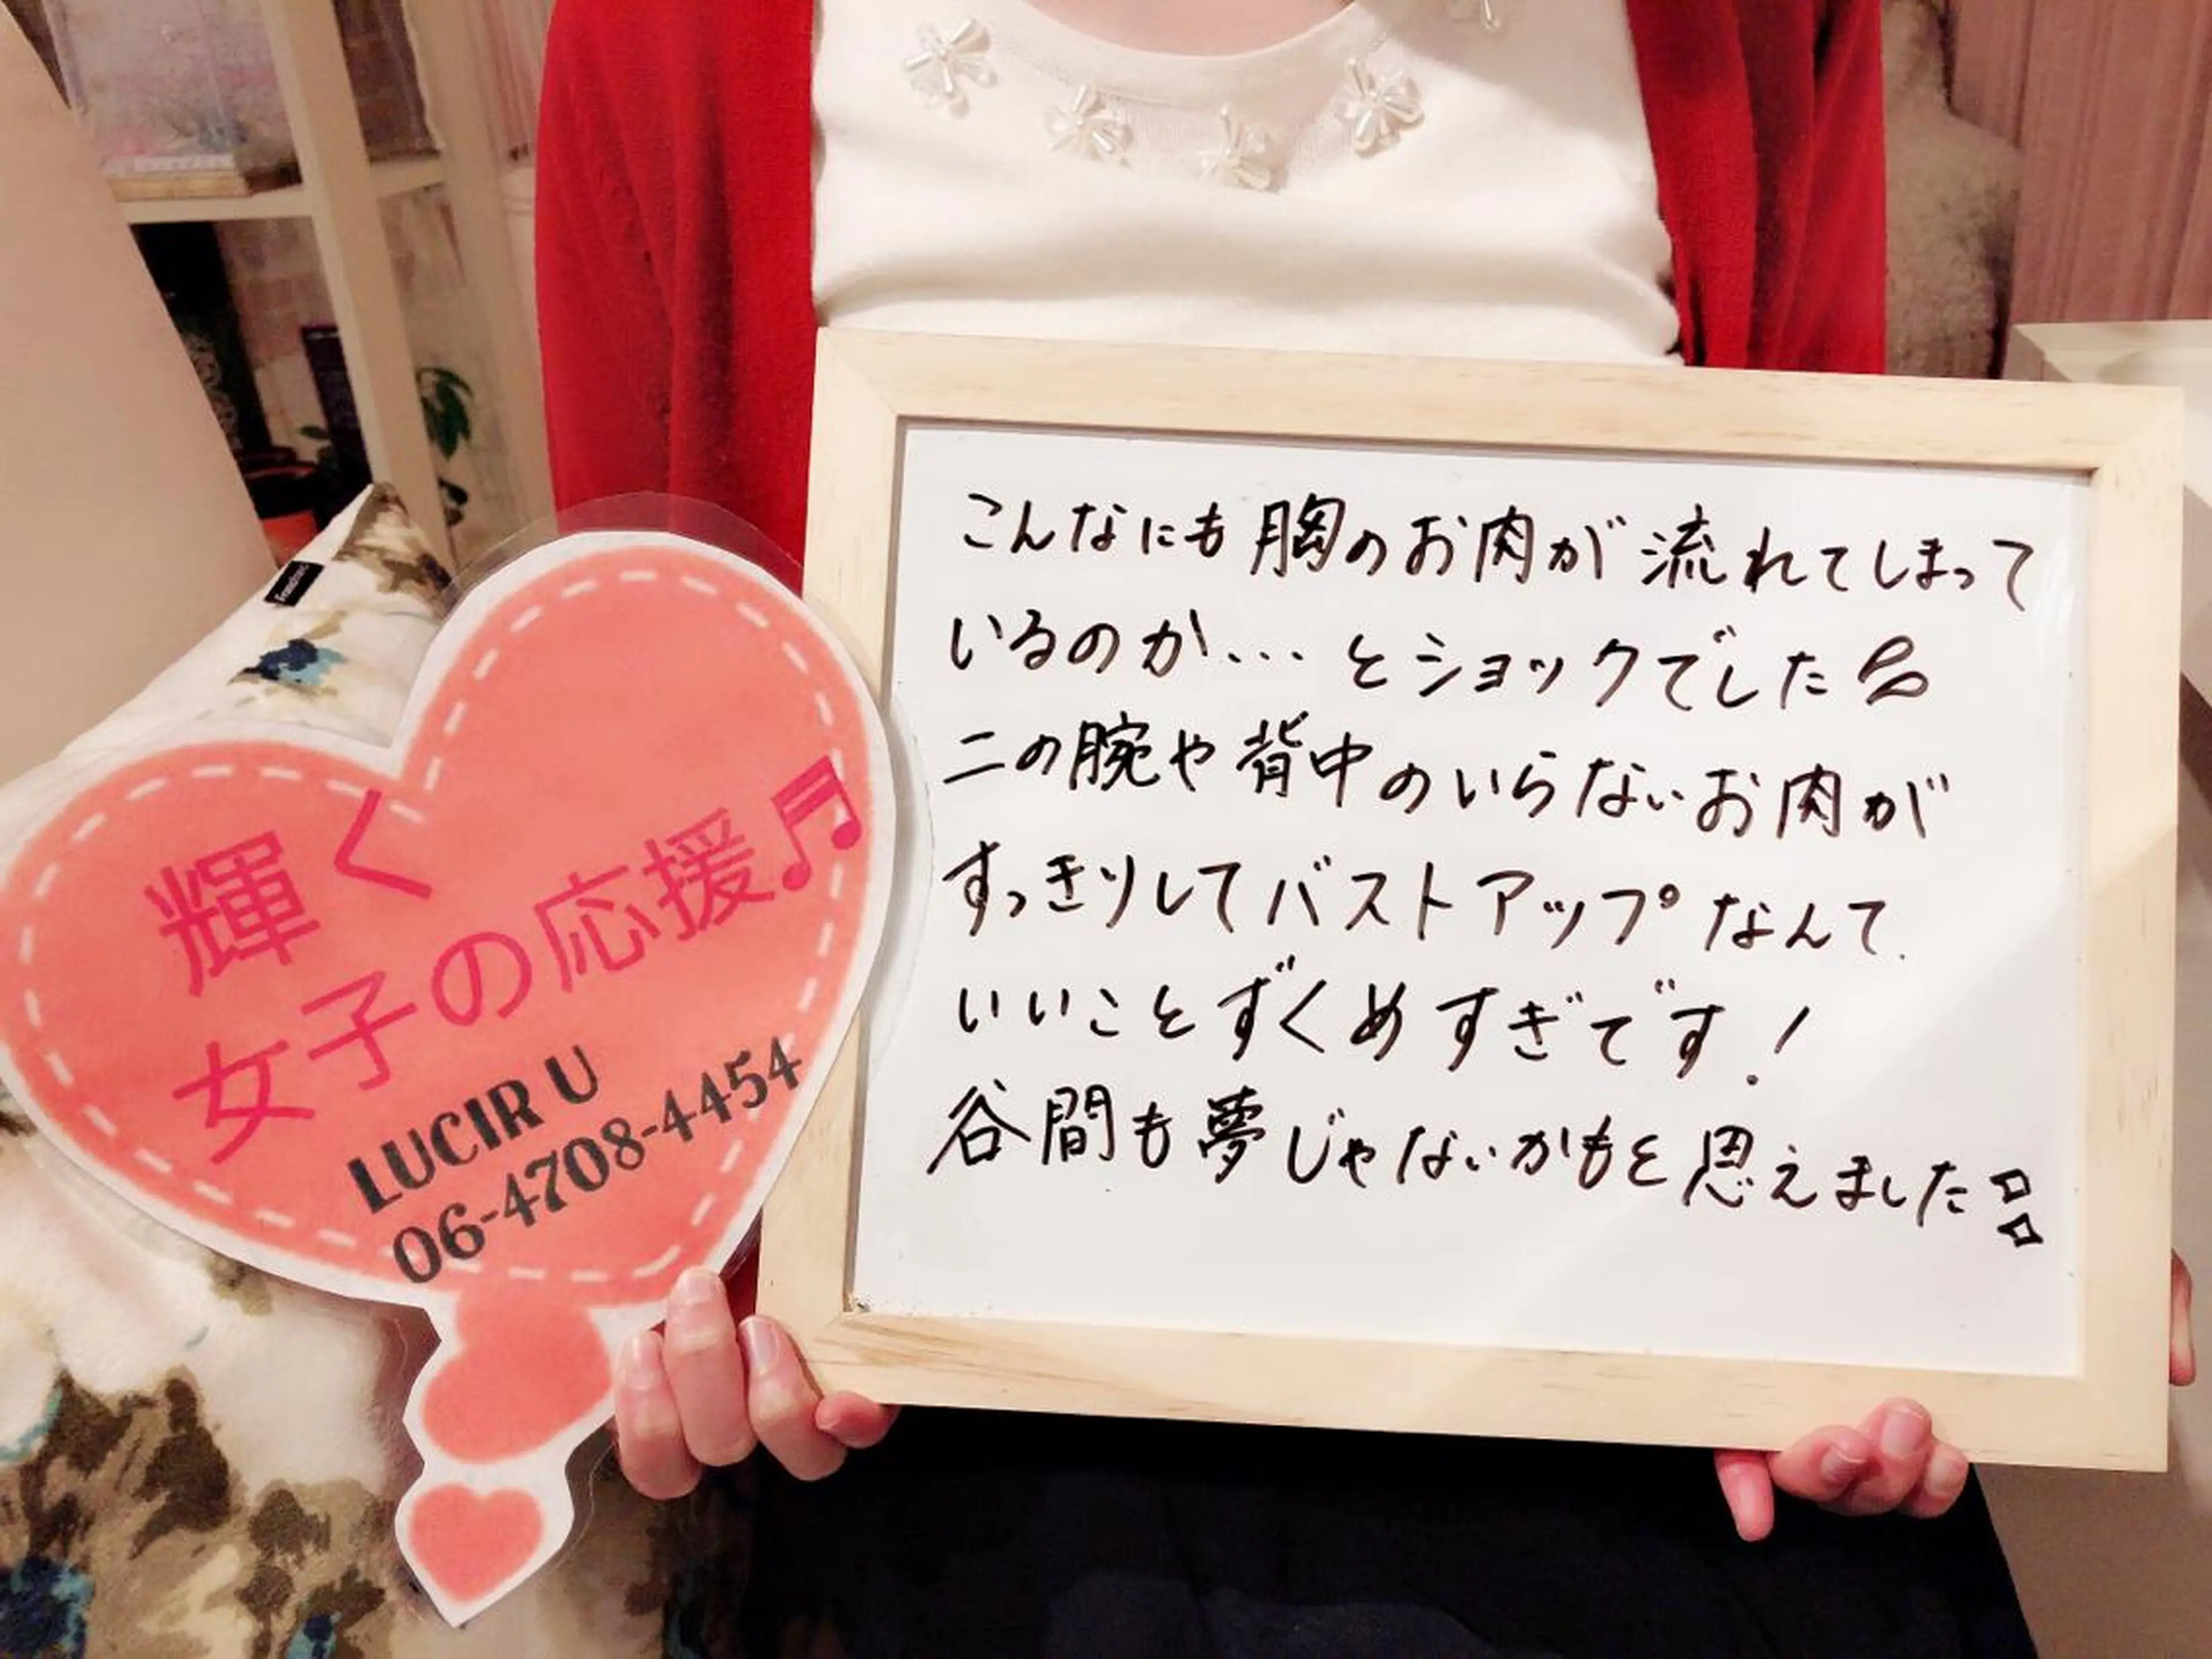 輝く
女子の応援♬
LUCIR U
06-4708-4454
こんなにも胸のお肉が流れてしまって
いるのか...とショックでした
二の腕や背中のいらないお肉が
すっきりしてバストアップなんて、
いいことずくめすぎです!
谷間も夢じゃないかもと思えました